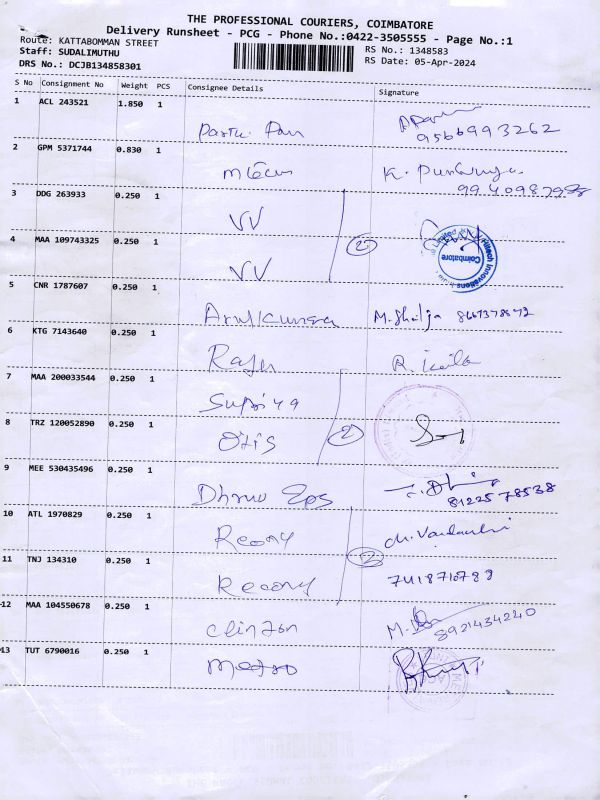 THE PROFESSIONAL COURIERS, COIMBATORE
Delivery Runsheet - PCG - Phone No.:0422-3505555 - Page No.:1
Route: KATTABOMMAN STREET
Staff: SUDALIMUTHU
DRS No.: DCJB134858301
RS No.: 1348583
RS Date: 05-Apr-2024
S No Consignment No Weight PCS Consignee Details Signature
1 ACL 243521 1.850 1
9566993262
2 GPM 5371744 0.830 1
K.
9940987998
3 DDG 263933 0.250 1
VV
4 MAA 109743325 0.250 1
VV
2
Hitech Innovations
Coimbatore
5 CNR 1787607 0.250 1
M. Shelja 8667378572
6 KTG 7143640 0.250 1
Raju R.
7 MAA 200033544 0.250 1
Supriya
8 TRZ 120052890 0.250 1
Otis
2
9 MEE 530435496 0.250 1
Dhruv Eps
8122578538
10 ATL 1970829 0.250 1
11 TNJ 134310 0.250 1
2
7418710789
12 MAA 104550678 0.250 1
Clinton
M.
8921434240
13 TUT 6790016 0.250 1
Metro